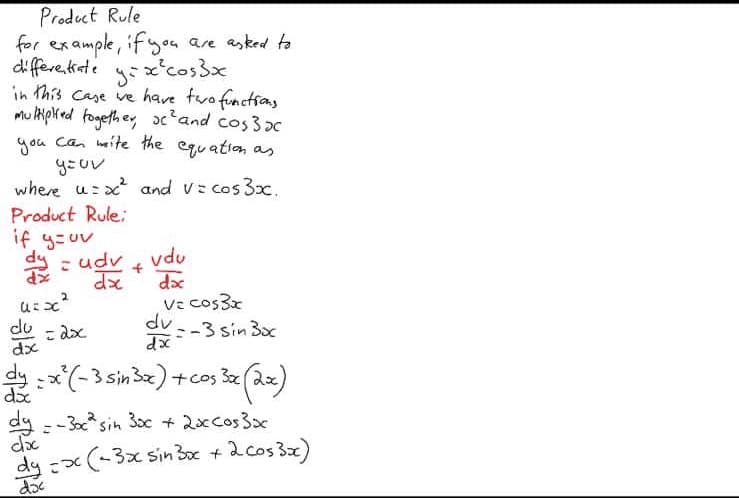 Product Rule
for example, if you are asked to
differentiate y = x²cos3x
in this case we have two functions
multiplied together, x² and cos3x
you can write the equation as
y=uv
where u = x² and v = cos3x.
Product Rule:
if y=uv
dy/dx = udv/dx + vdu/dx
u=x² v= cos3x
du/dx = 2x dv/dx = -3 sin3x
dy/dx = x²(-3 sin3x) + cos 3x(2x)
dy/dx = -3x² sin 3x + 2xcos3x
dy/dx = x(-3x sin3x + 2cos3x)